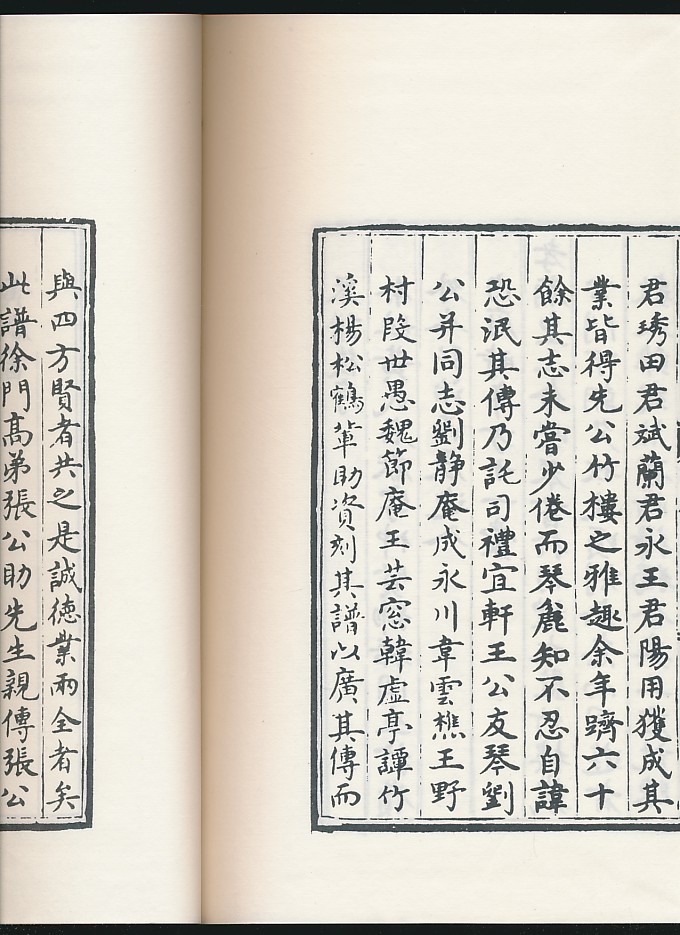 君琇田君斌蘭君永王君陽用獲成其
業皆得先公竹樓之雅趣余年躋六十
餘其志未嘗少倦而琴麄知不忍自諱
恐泯其傳乃託司禮宜軒王公友琴劉
公并同志劉静庵成永川韋雲樵王野
村段世愚魏節庵王芸窓韓虚亭譚竹
溪楊松鶴軰助資刻其譜以廣其傳而
與四方賢者共之是誠徳業兩全者矣
此譜徐門髙弟張公助先生親傳張公